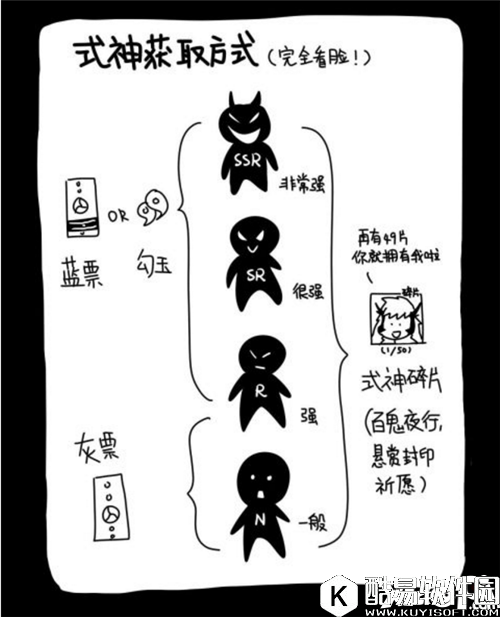 式神获取方式(完全看脸!)
SSR
非常强
OR
蓝票
勾玉
SR
很强
再有49片
你就拥有我啦
碎片
(1/50)
R
强
式神碎片
(百鬼夜行,
悬赏封印
祈愿)
灰票
N
一般
K
WWW.KUYISOFT.COM